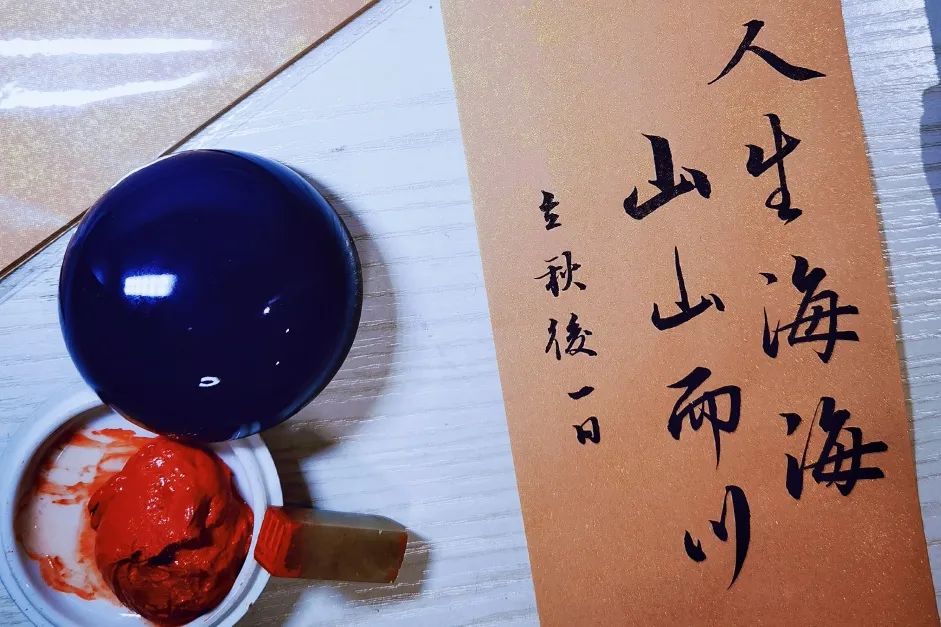 人生海海
山山而川
立秋後一日